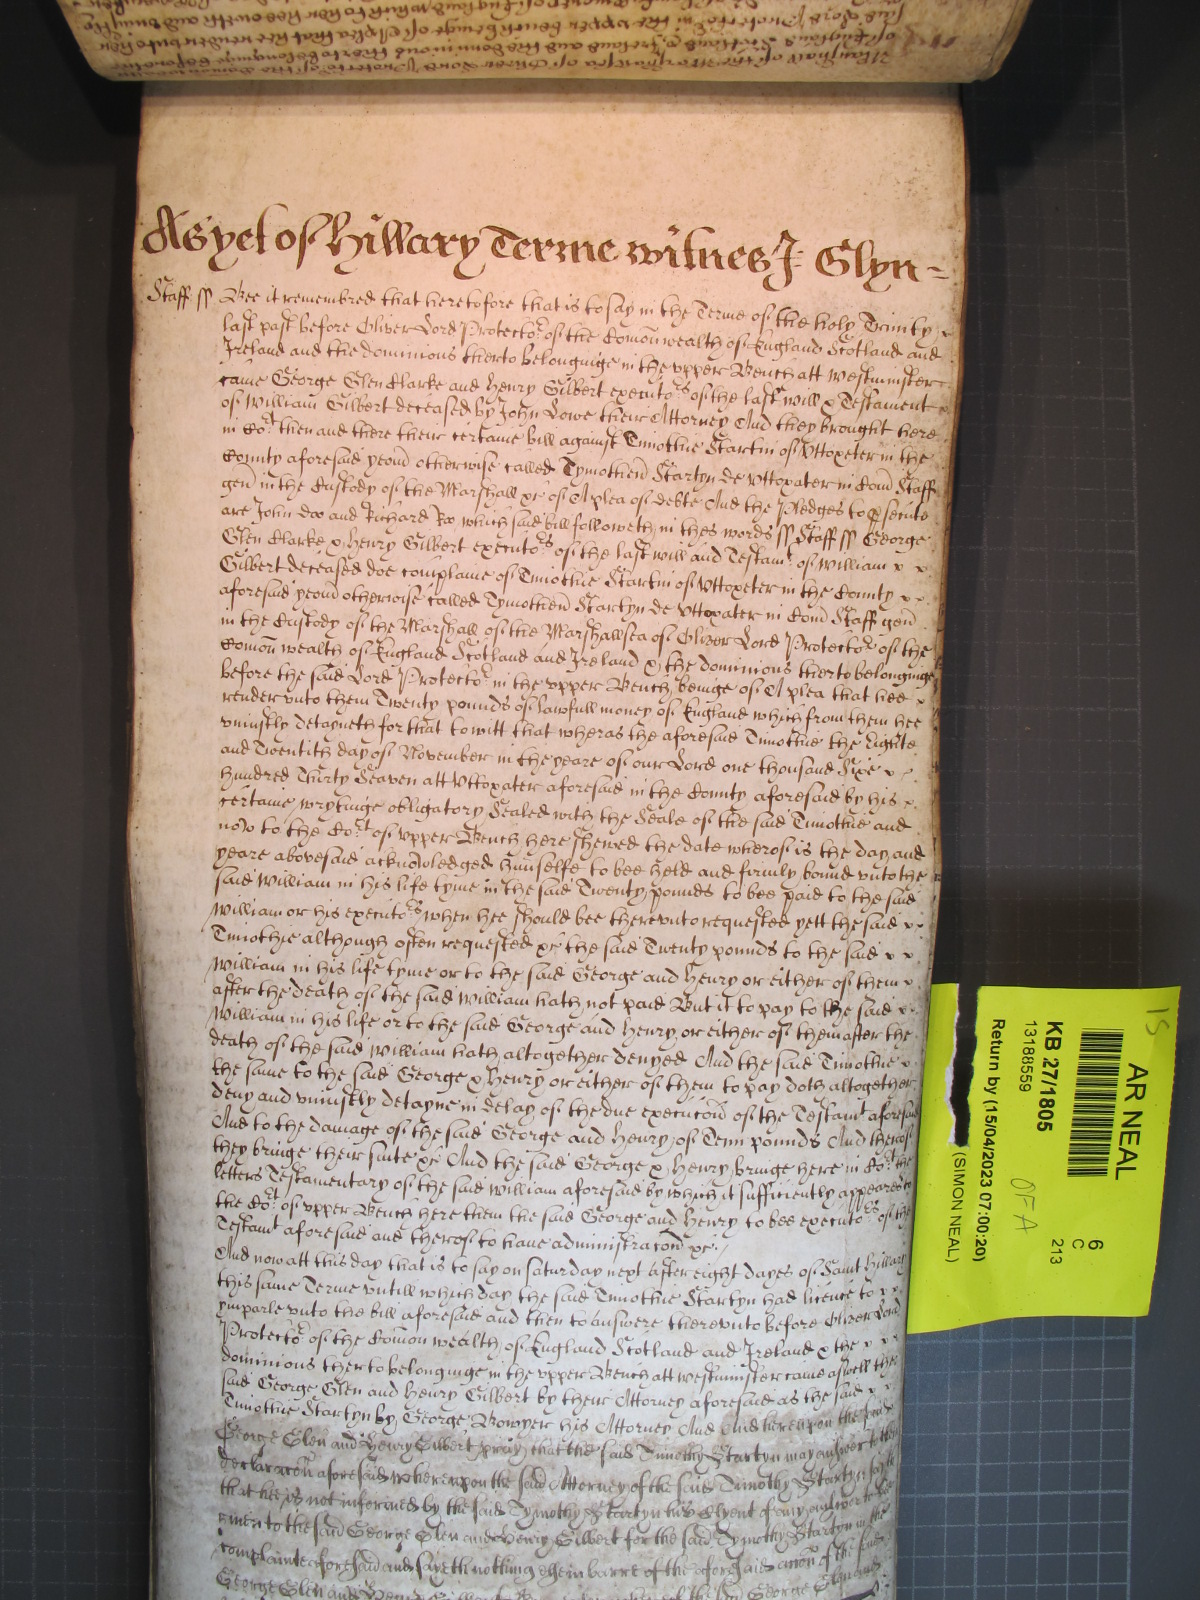 As yet of Hillary Terme witnes J: Glyn=
Staff ss Bee it remembred that heretofore that is to say in the Terme of the holy Trinity
last past before Oliver Lord Protector of the Comonwealth of England Scotland and
Ireland and the dominions therto belonginge in the upper Bench att Westminster
came George Glen Clarke and Henry Gilbert executors of the last will & Testament
of William Gilbert deceased by John Lowe their Attorney And they brought here
in Cort then and there their certaine bill against Timothie Startin of Uttoxeter in the
County aforesaid yeom otherwise called Tymothien Startyn de Uttoxater in Com Staff
gen in the Custody of the Marshall xc of A plea of debte And the Pledges to psecute
are John Doo and Richard Roo which said bill followeth in thes words ss Staff ss George
Glen Clarke & Henry Gilbert executors of the last will and Testamt of William x x
Gilbert deceased doe complaine of Timothie Startin of Uttoxeter in the County x x
aforesaid yeom otherwise called Tymothien Startyn de Uttoxater in Com Staff gen
in the Custody of the Marshall of the Marshallsea of Oliver Lord Protector of the
Comon wealth of England Scotland and Ireland & the dominions therto belonginge
before the said Lord Protector in the upper Bench beinge of A plea that hee
render unto them Twenty pounds of lawfull money of England which from them hee
uniustly detayneth for that to witt that wheras the aforesaid Timothie the Eighte
and Twentith day of November in the yeare of our Lord one thousand Sixe x
hundred Thirty Seaven att Uttoxater aforesaid in the County aforesaid by his x
certaine wrytinge obligatory Sealed with the Seale of the said Timothie and
now to the Cort of upper Bench here shewed the date wherof is the day and
yeare abovesaid acknowledged himselfe to bee held and firmly bound unto the
said William in his life tyme in the said Twenty pounds to bee paid to the said
William or his executors when hee should bee thereunto requested yett the said x
Timothie although often requested xc the said Twenty pounds to the said x x
William in his life tyme or to the said George and Henry or either of them x
after the death of the said William hath not paid But it to pay to the said x
William in his life or to the said George and Henry or either of them after the
death of the said William hath altogether denyed And the said Timothie x
the same to the said George & Henry or either of them to pay doth altogether
deny and uniustly detayne in delay of the due execucon of the Testamt aforesaid
And to the damage of the said George and Henry of Tenn pounds And therof
they bringe their suite xc And the said George & Henry bringe here in Cort the
letters Testamentary of the said William aforesaid by which it sufficiently appeares to
the Cort of upper Bench here them the said George and Henry to bee executors of the
Testamt aforesaid and therof to have administracon xc
And now att this day that is to say on saturday next after eight dayes of Saint Hillary
this same Terme untill which day the said Timothie Startyn had licence to x x
ymparle unto the bill aforesaid and then to answere thereunto before Oliver Lord
Protector of the Comon wealth of England Scotland and Ireland & the x x
dominions therto belonginge in the upper Bench att Westminster came aswell the
said George Glen and Henry Gilbert by their Attorney aforesaid as the said x x
Timothie Startyn by George Bowyer his Attorney And And hereupon the said
George Glen and Henry Gilbert pray that the said Timothy Startyn may answer to their
declaracon aforesaid whereupon the said Attorney of the said Timothy Startyn sayth
that hee is not informed by the said Tymothy Startyn his Clyent of any answer to bee
given to the said George Glen and Henry Gilbert for the said Tymothy Startyn in the
complainte aforesaid and sayeth nothing else in barre of the aforesaid accon of the said
George Glen and Henry Gilbert
AR NEAL
KB 27/1805
13188559
Return by (15/04/2023 07:00:20)
(SIMON NEAL)
6
C
213
OFA
15